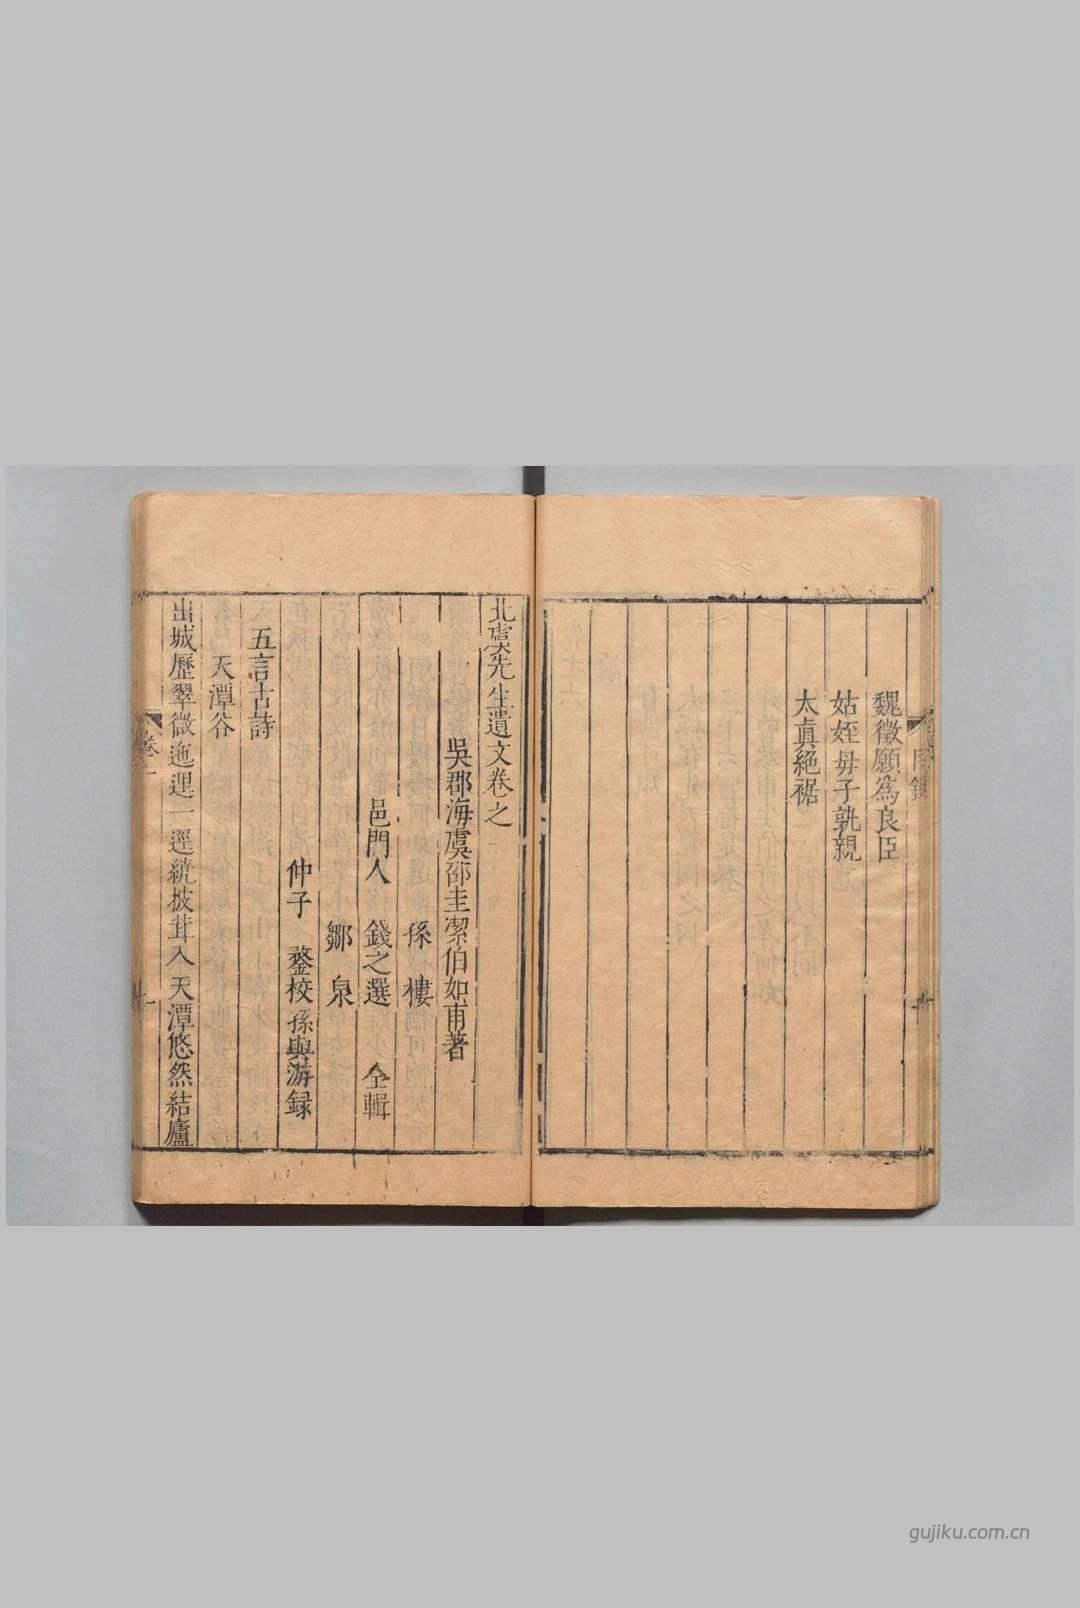 魏徵願爲良臣
姑姪母子孰親
太真絕裾
北虞先生遺文卷之一
吳郡海虞邵圭潔伯如甫著
孫樓
邑門人 錢之選 仝輯
鄒泉
仲子 鏊校 孫與游録
五言古詩
天潭谷
出城歷翠微迤逦一逕統披茸入天潭悠然結廬
卷一
gujiku.com.cn